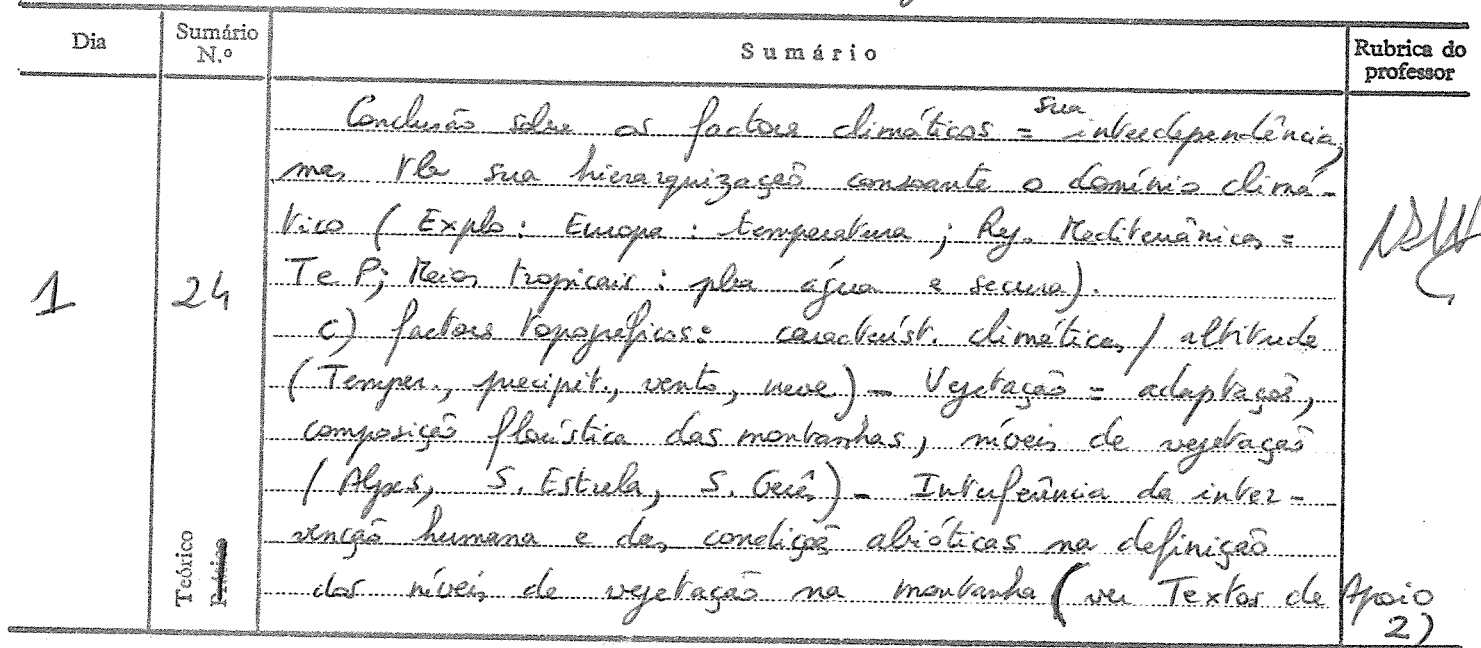 Dia
Sumário N.º
Sumário
Rubrica do professor
1
24
Teórico
Conclusão sobre os factores climáticos = sua interdependência,
mas sua hierarquização consoante o domínio climá-
tico (Explo: Europa: temperatura; Reg. Mediterrânicas =
T e P; Meios tropicais: água e secura).
c) factores topográficos: característ. climáticas / altitude
(Temper., precipit., vento, neve) - Vegetação = adaptação,
composição florística das montanhas, níveis de vegetação
(Alpes, S. Estrela, S. Gerês) - Interferência da inter-
venção humana e das condições abióticas na definição
dos níveis de vegetação na montanha (ver Textos de Apoio
2)